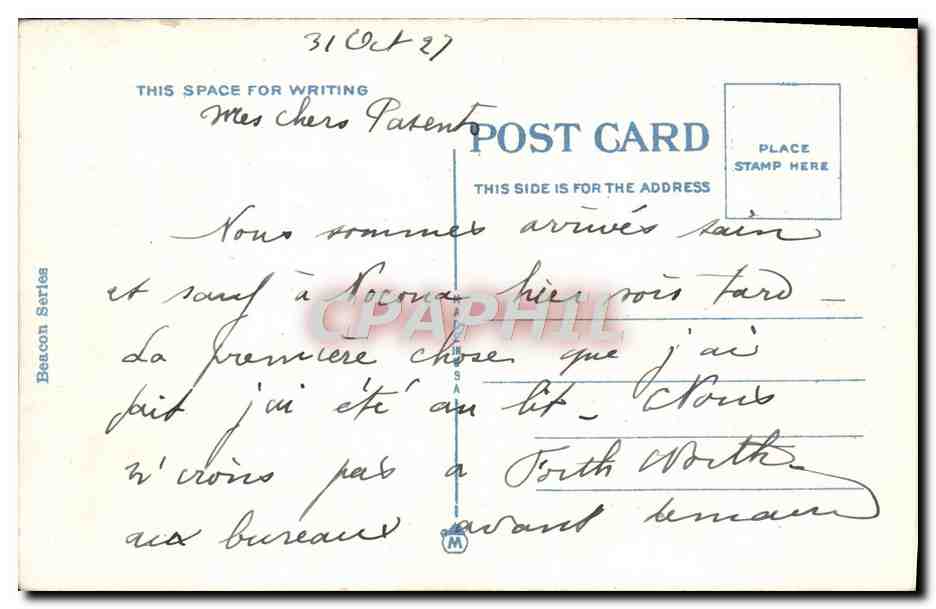 31 Oct 27
THIS SPACE FOR WRITING
Mes chers Parents
POST CARD
PLACE
STAMP HERE
THIS SIDE IS FOR THE ADDRESS
Nous sommes arrivés sain
et sauf à Nocona hier soir tard _
La première chose que j'ai
fait j'ai été au lit _ Nous
n'irons pas a Forth Worth
aux bureaux avant demain
Beacon Series
MADE IN USA
M
CPAPHIL